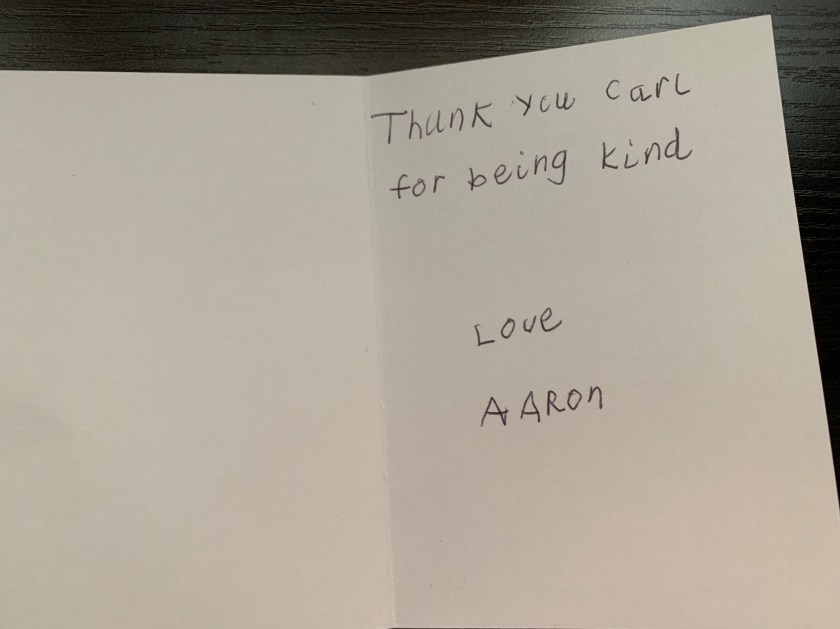 Thank you Carl
for being kind
Love
AARON